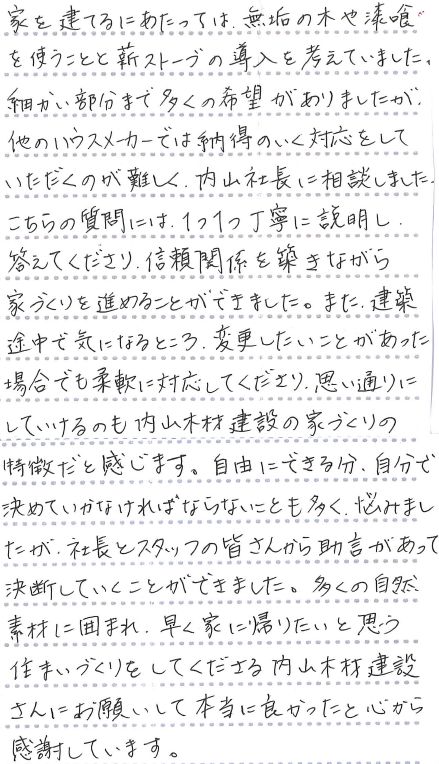 家を建てるにあたっては、無垢の木や漆喰
を使うことと薪ストーブの導入を考えていました。
細かい部分まで多くの希望がありましたが、
他のハウスメーカーでは納得のいく対応をして
いただくのが難しく、内山社長に相談しました。
こちらの質問には、1つ1つ丁寧に説明し、
答えてくださり、信頼関係を築きながら
家づくりを進めることができました。また、建築
途中で気になるところ、変更したいことがあった
場合でも柔軟に対応してくださり、思い通りに
していけるのも内山木材建設の家づくりの
特徴だと感じます。自由にできる分、自分で
決めていかなければならないことも多く、悩みまし
たが、社長とスタッフの皆さんから助言があって
決断していくことができました。多くの自然
素材に囲まれ、早く家に帰りたいと思う
住まいづくりをしてくださる内山木材建設
さんにお願いして本当に良かったと心から
感謝しています。